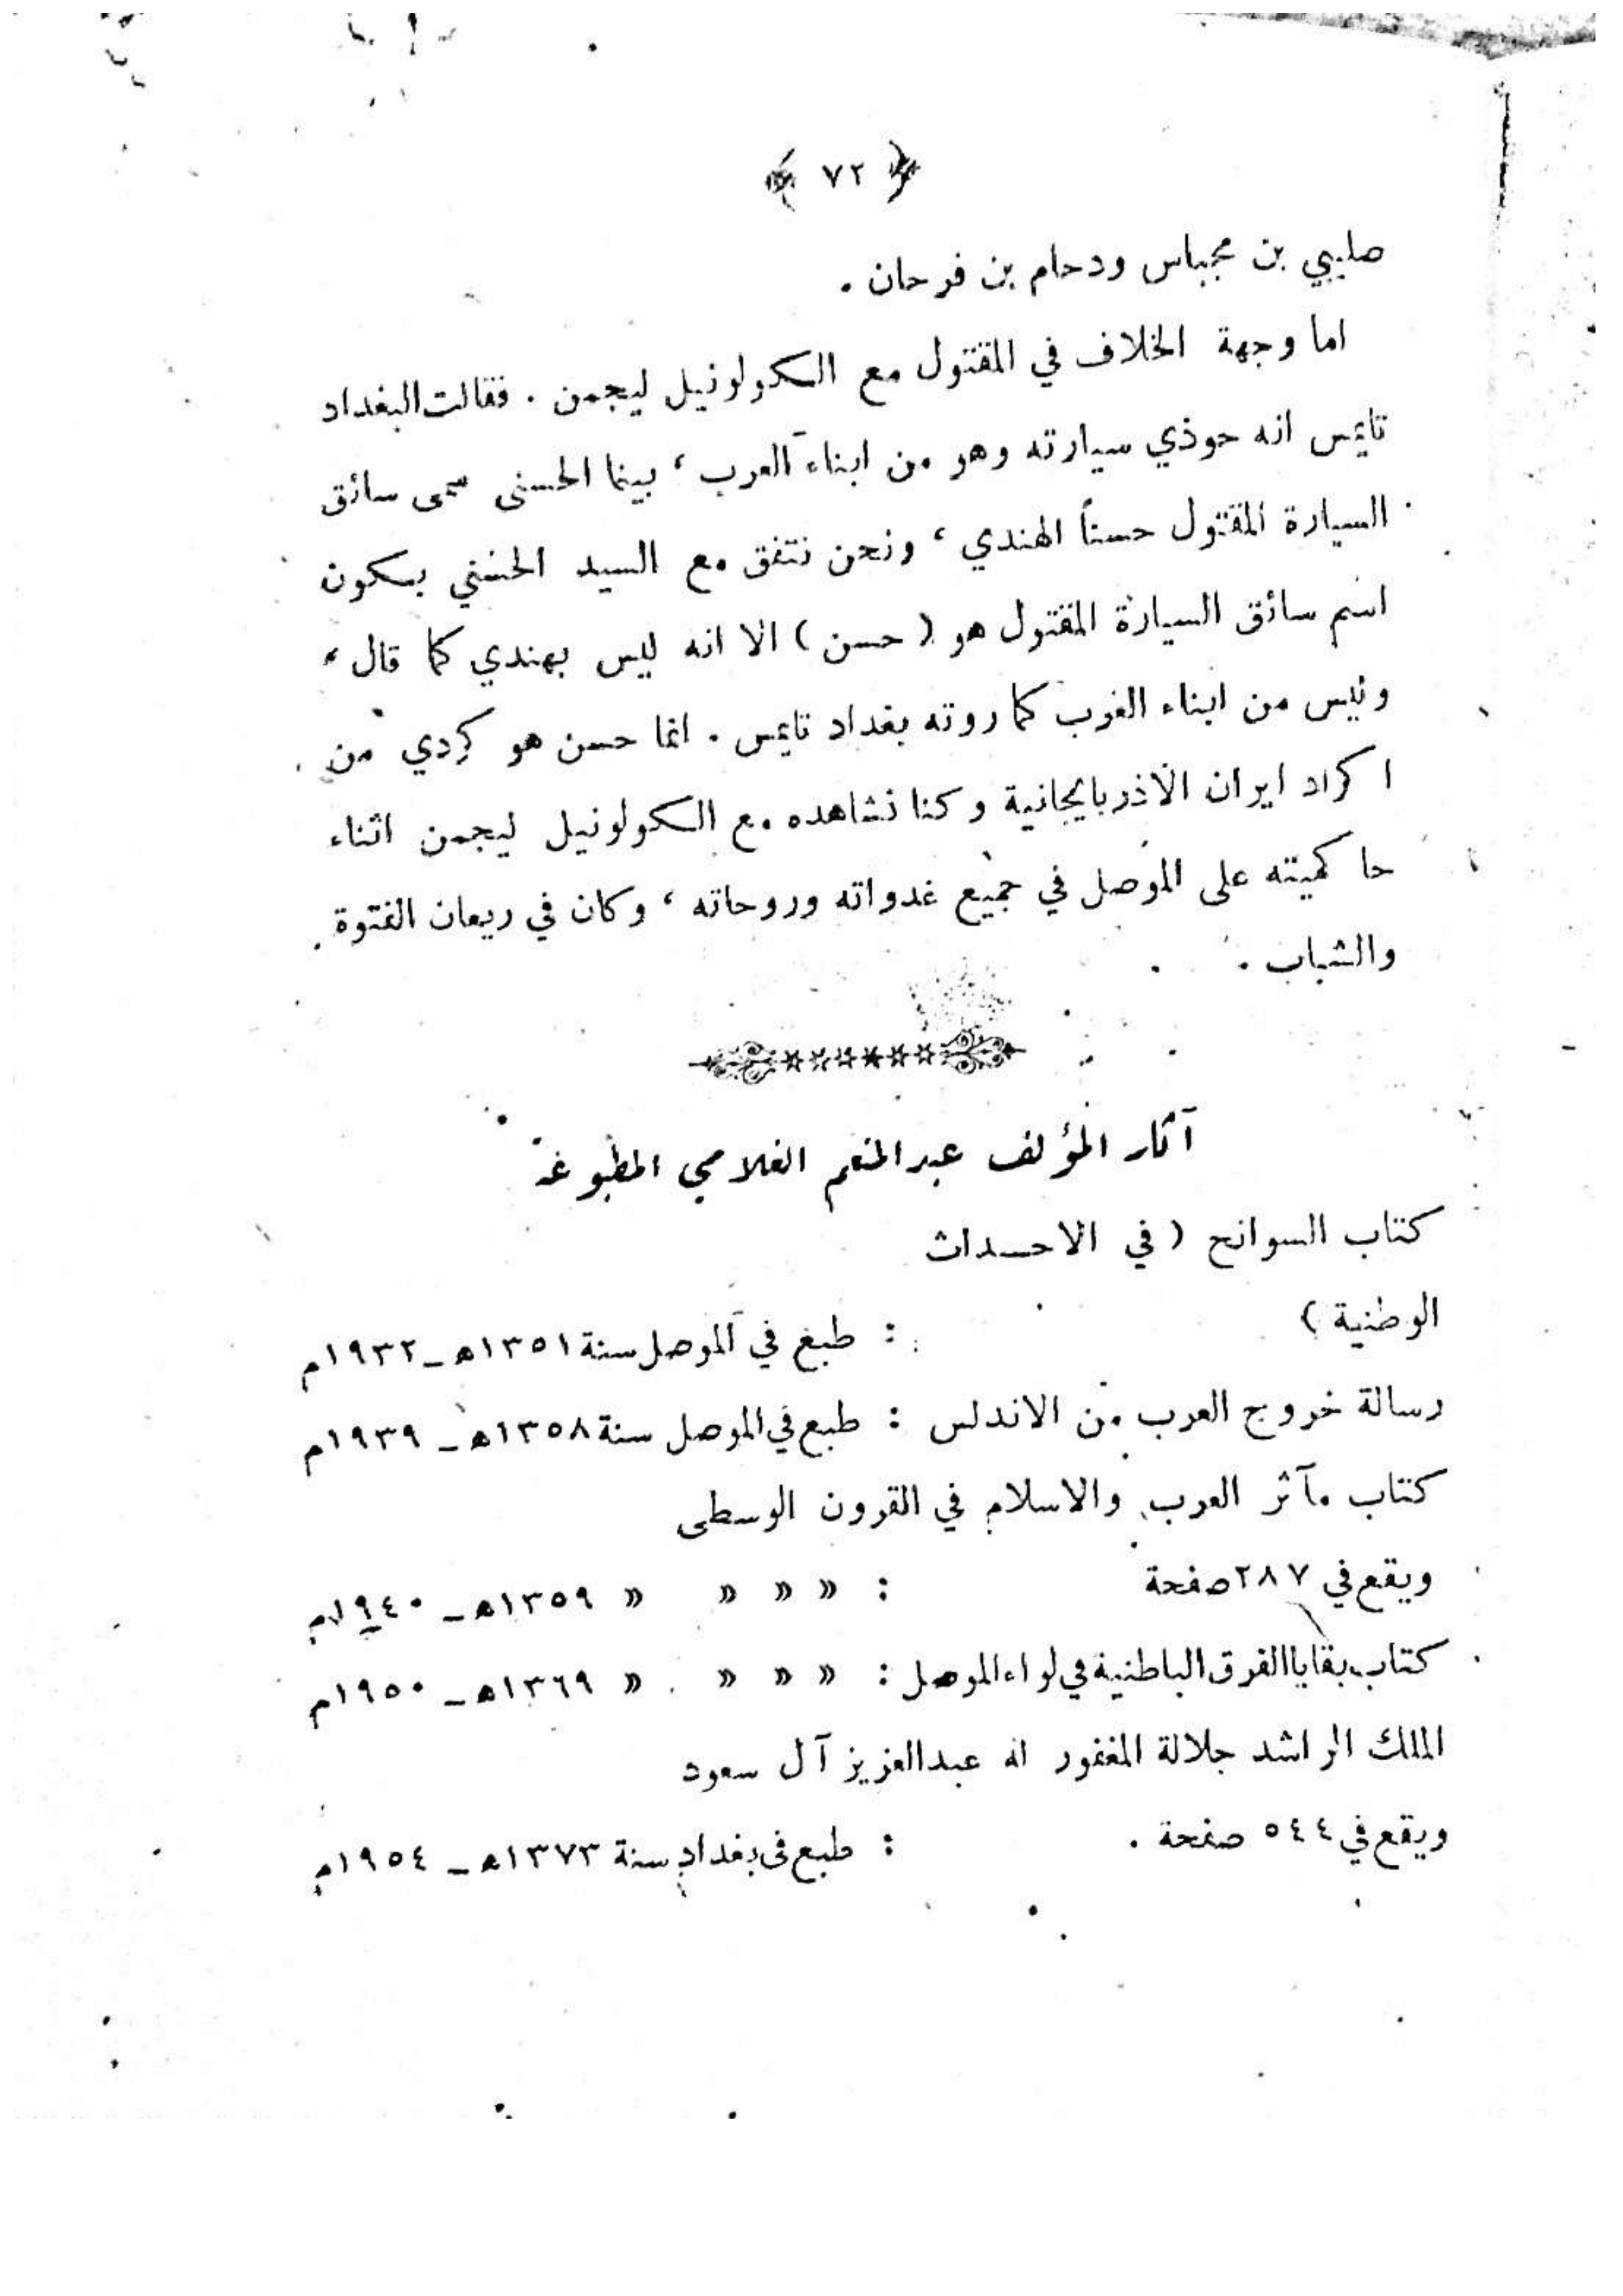 ﴿ ٧٢ ﴾
صليبي بن مجباس ودحام بن فرحان .
اما وجهة الخلاف في المقتول مع الكولونيل ليجمن . فقالت البغداد
تايمس انه حوذي سيارته وهو من ابناء العرب ، بينما الحسني سمى سائق
السيارة المقتول حسناً الهندي ، ونحن نتفق مع السيد الحسني بكون
اسم سائق السيارة المقتول هو ( حسن ) الا انه ليس بهندي كما قال ،
وليس من ابناء العرب كما روته بغداد تايمس . انما حسن هو كردي من
اكراد ايران الاذربايجانية وكنا نشاهده مع الكولونيل ليجمن اثناء
حاكميته على الموصل في جميع غدواته وروحاته ، وكان في ريعان الفتوة
والشباب .
آثار المؤلف عبدالمنعم الغلامي المطبوعة
كتاب السوانح ( في الاحداث
الوطنية ) : طبع في الموصل سنة ١٣٥١هـ ـ ١٩٣٢م
رسالة خروج العرب من الاندلس : طبع في الموصل سنة ١٣٥٨هـ ـ ١٩٣٩م
كتاب مآثر العرب والاسلام في القرون الوسطى
ويقع في ٢٨٧ صفحة : « « « « ١٣٥٩هـ ـ ١٩٤٠م
كتاب بقايا الفرق الباطنية في لواء الموصل : « « « « ١٣٦٩هـ ـ ١٩٥٠م
الملك الراشد جلالة المغفور له عبدالعزيز آل سعود
ويقع في ٥٤٤ صفحة . : طبع في بغداد سنة ١٣٧٣هـ ـ ١٩٥٤م